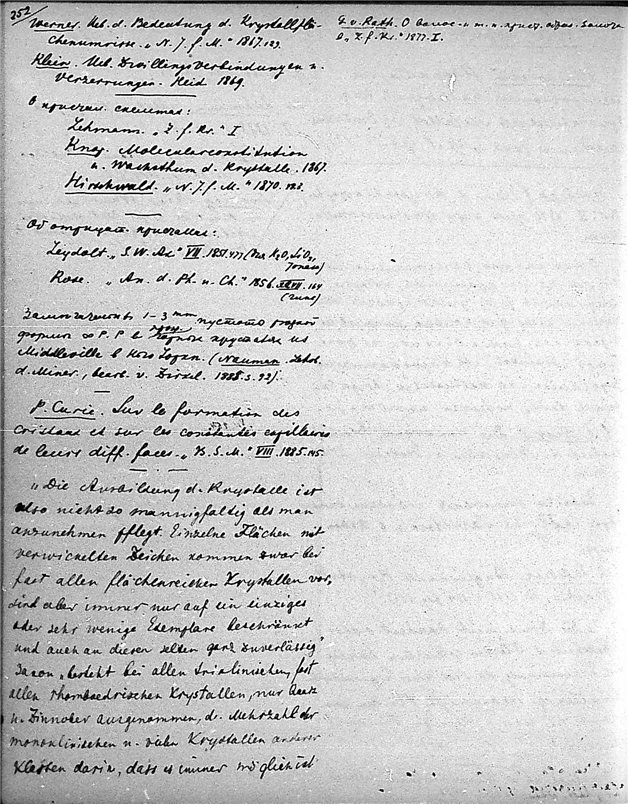 252
Werner. Ueb. d. Bedeutung d. Krystallflä-
chenumrisse. „N. J. f. M." 1867.
Klein. Ueb. Zwillingsverbindungen u.
Verzerrungen. Heid 1869.
О кристал. скелетах:
Lehmann. „Z. f. Kr." I
Knop. Molecularconstitution
u. Wachsthum d. Krystalle. 1867.
Hirschwald. „N. J. f. M." 1870.
Об отрицат. кристаллах:
Leydolt. „S. W. Ak" VII. 1851.477
Rose. „An. d. Ph. u. Ch." 1856. 164
1–3 mm пустоты
формы ∞P.P в
Middleville в (Naumann.
d. Miner., bearb. v. Zirkel. 1885.
P. Curie. Sur la formation des
cristaux et sur les constantes capillaires
de leurs diff. faces. „B. S. M." VIII. 1885.145.
„Die Ausbildung d. Krystalle ist
also nicht so mannigfaltig als man
anzunehmen pflegt. Einzelne Flächen mit
verwickelten Zeichen kommen zwar bei
fast allen flächenreichen Krystallen vor,
sind aber immer nur auf ein einziges
oder sehr wenige Exemplare beschränkt
und auch an diesen selten ganz zuverlässig"
„besteht bei allen triclinischen, fast
allen rhomboedrischen Krystallen, nur Quarz
u. Zinnober ausgenommen, d. Mehrzahl der
monoclinischen u. vielen Krystallen anderer
Klassen darin, dass es immer möglich ist
G. v. Rath. О
„Z. f. Kr." 1877. I.